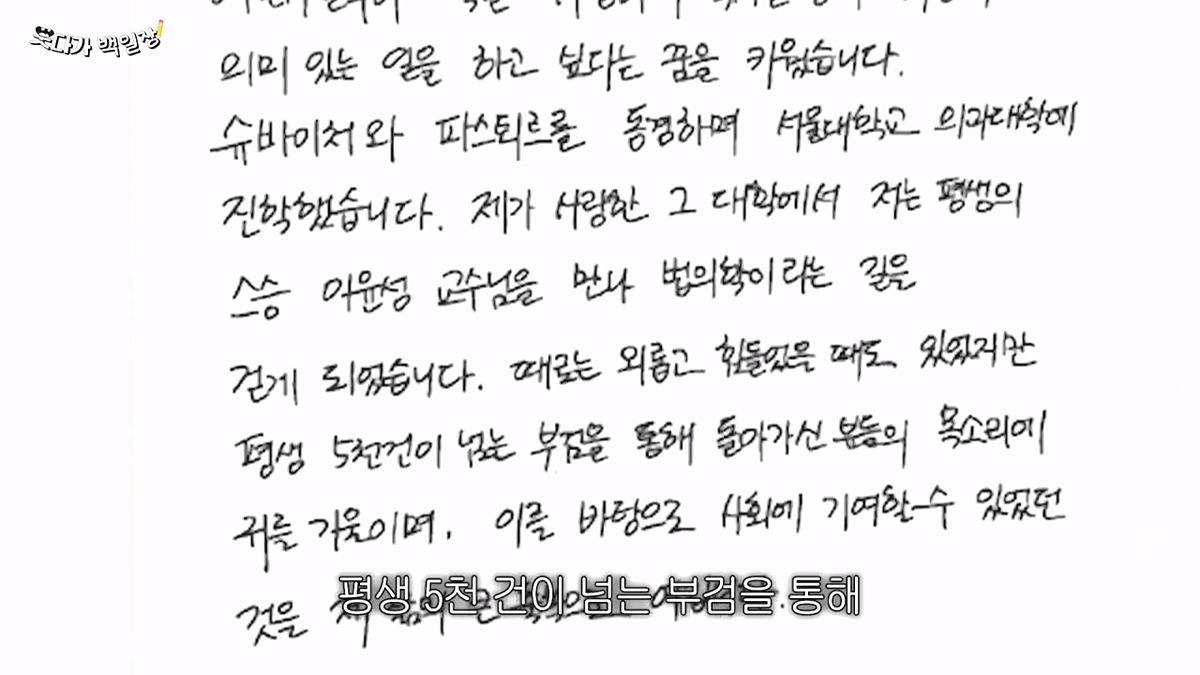 웃다가 백일장
의미 있는 일을 하고 싶다는 꿈을 키웠습니다.
슈바이처와 파스퇴르를 동경하며 서울대학교 의과대학에
진학했습니다. 제가 사랑한 그 대학에서 저는 평생의
스승 이윤성 교수님을 만나 법의학이라는 길을
걷게 되었습니다. 때로는 외롭고 힘들었을 때도 있었지만
평생 5천건이 넘는 부검을 통해 돌아가신 분들의 목소리에
귀를 기울이며, 이를 바탕으로 사회에 기여할 수 있었던
것을 제 삶의 큰
평생 5천 건이 넘는 부검을 통해